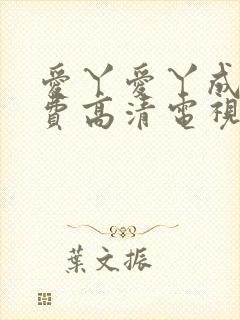 愛丫愛丫成
費高清電視
葉文振